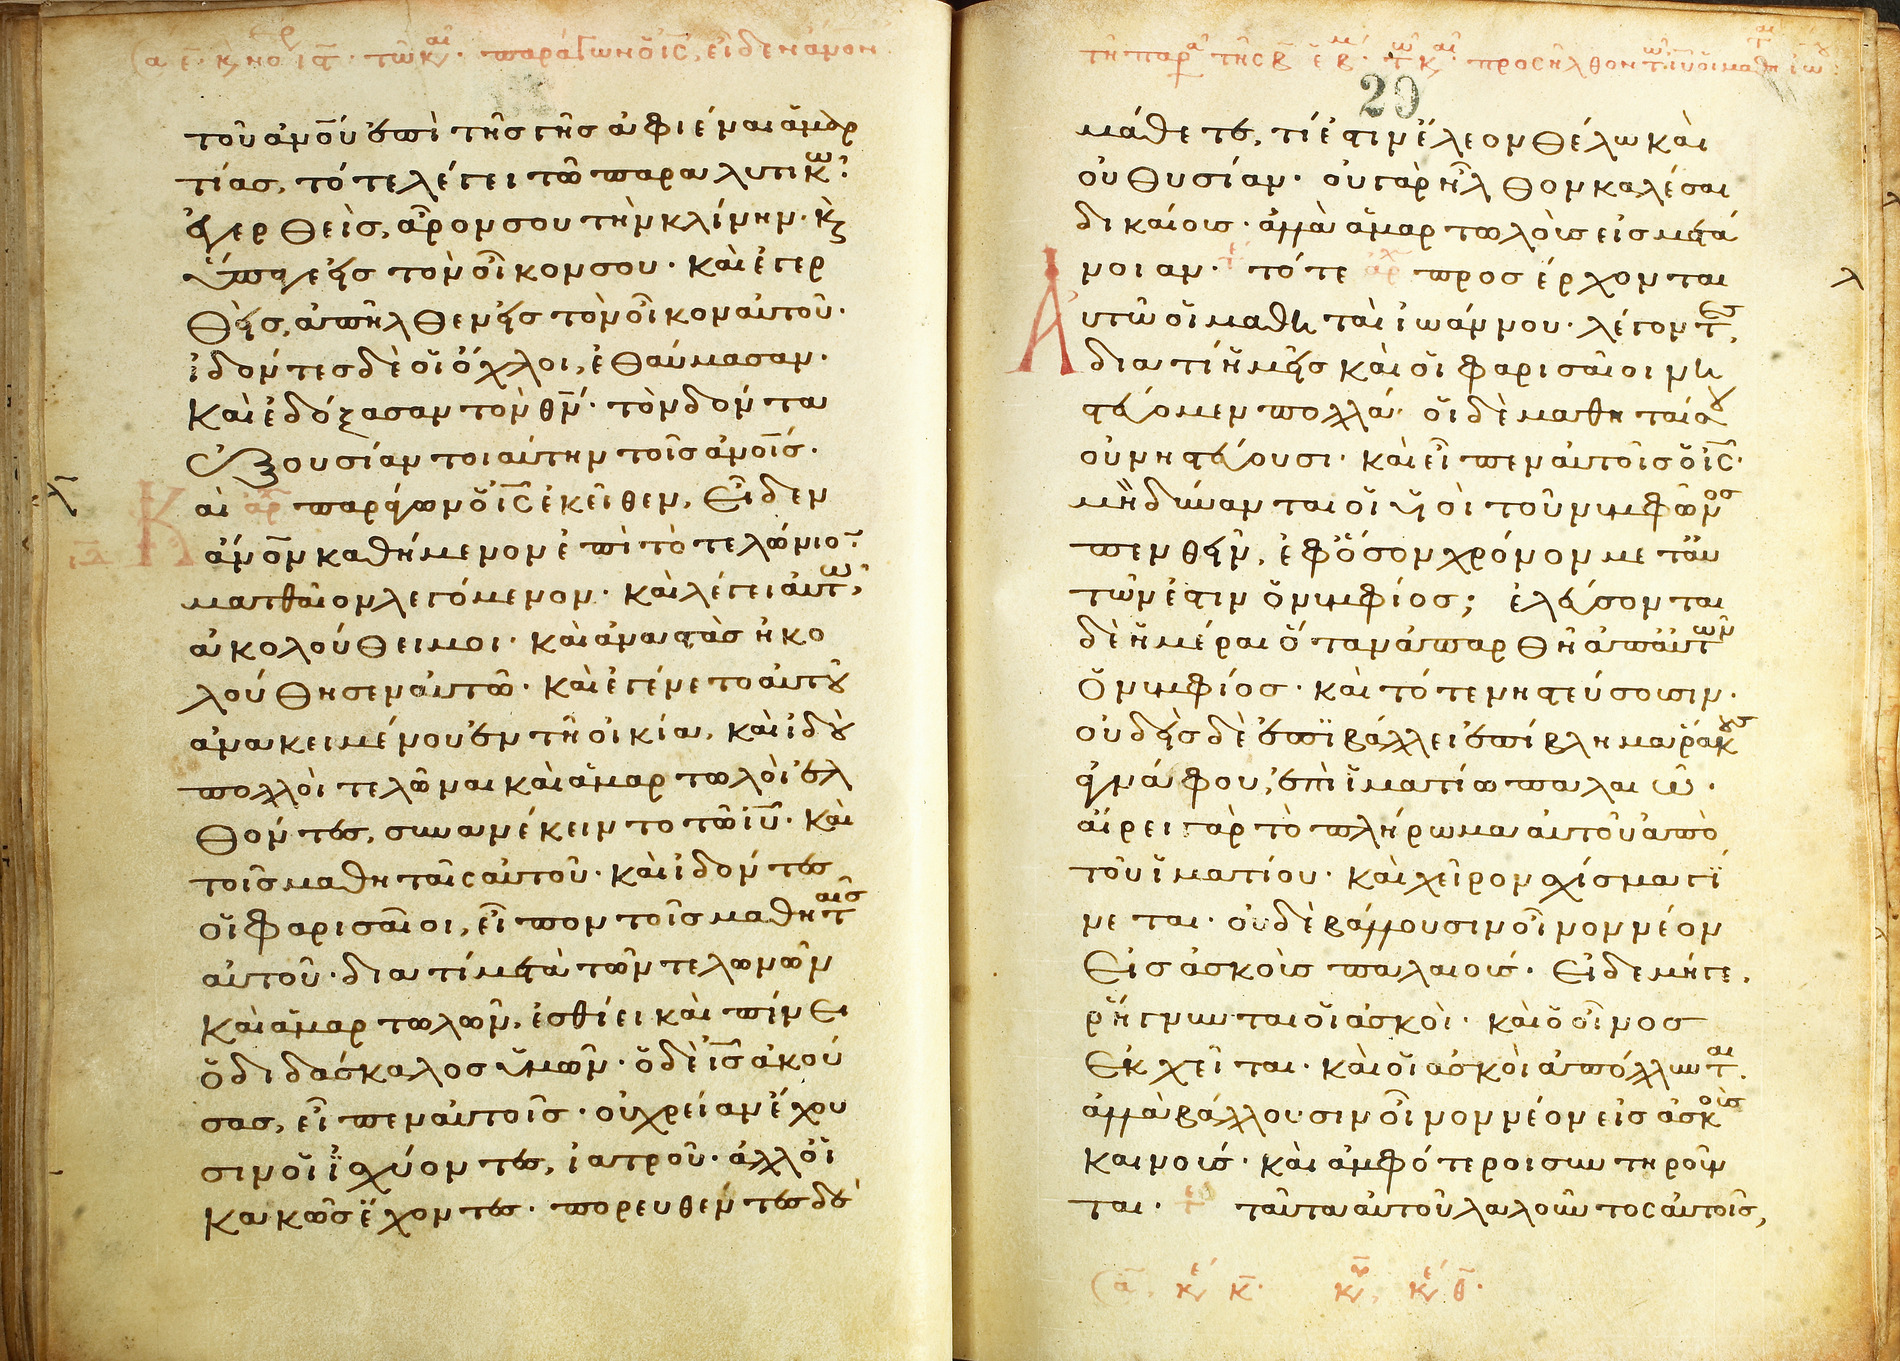 τοῦ ἀνου ἐπὶ τῆς γῆς ἀφιέναι ἁμαρ
τίας, τότε λέγει τῶ παραλυτικῶ·
ἐγερθεὶς, ἆρόν σου τὴν κλίνην· κ
ὕπαγε εἰς τὸν οἶκόν σου· καὶ ἐγερ
θεὶς, ἀπῆλθεν εἰς τὸν οἶκον αὐτοῦ·
ἰδόντες δὲ οἱ ὄχλοι, ἐθαύμασαν·
καὶ ἐδόξασαν τὸν θν· τὸν δόντα
ἐξουσίαν τοιαύτην τοῖς ἀνοις·
Καὶ ἀρχ παράγων ὁ ις ἐκεῖθεν, εἶδεν
ἀνον καθήμενον ἐπὶ τὸ τελώνιον·
ματθαῖον λεγόμενον· καὶ λέγει αὐτῶ,
ἀκολούθει μοι· καὶ ἀναστὰς ἠκο
λούθησεν αὐτῶ· καὶ ἐγένετο αὐτοῦ
ἀνακειμένου ἐν τῆ οἰκία, καὶ ἰδοὺ
πολλοὶ τελῶναι καὶ ἁμαρτωλοὶ ἐλ
θόντες, συνανέκειντο τῶ ιυ· καὶ
τοῖς μαθηταῖς αὐτοῦ· καὶ ἰδόντες
οἱ φαρισαῖοι, εἶπον τοῖς μαθηταῖς
αὐτοῦ· διατί μετὰ τῶν τελωνῶν
καὶ ἁμαρτωλῶν, ἐσθίει καὶ πίνει
ὁ διδάσκαλος ὑμῶν· ὁ δὲ ις ἀκού
σας, εἶπεν αὐτοῖς· οὐ χρείαν ἔχου
σιν οἱ ἰσχύοντες, ἰατροῦ· ἀλλ' οἱ
κακῶς ἔχοντες· πορευθέντες δὲ
29
μάθετε, τί ἐστιν ἔλεον θέλω καὶ
οὐ θυσίαν· οὐ γὰρ ἦλθον καλέσαι
δικαίους· ἀλλὰ ἁμαρτωλοὺς εἰς μετά
νοιαν· τότε ἀρχ προσέρχονται
Αὐτῶ οἱ μαθηταὶ ἰωάννου· λέγοντες,
διατί ἡμεῖς καὶ οἱ φαρισαῖοι νη
στεύομεν πολλά· οἱ δὲ μαθηταί σου
οὐ νηστεύουσι· καὶ εἶπεν αὐτοῖς ὁ ις·
μὴ δύνανται οἱ υἱοὶ τοῦ νυμφῶνος
πενθεῖν, ἐφ' ὅσον χρόνον μετ' αὐ
τῶν ἐστιν ὁ νυμφίος; ἐλεύσονται
δὲ ἡμέραι ὅταν ἀπαρθῆ ἀπ' αὐτῶν
ὁ νυμφίος· καὶ τότε νηστεύσουσιν·
οὐδεὶς δὲ ἐπιβάλλει ἐπίβλημα ῥάκους
ἀγνάφου, ἐπὶ ἱματίω παλαιῶ·
αἴρει γὰρ τὸ πλήρωμα αὐτοῦ ἀπὸ
τοῦ ἱματίου· καὶ χεῖρον σχίσμα γί
νεται· οὐδὲ βάλλουσιν οἶνον νέον
εἰς ἀσκοὺς παλαιούς· εἰ δὲ μήγε,
ῥήγνυνται οἱ ἀσκοὶ· καὶ ὁ οἶνος
ἐκχεῖται· καὶ οἱ ἀσκοὶ ἀπόλλυνται·
ἀλλὰ βάλλουσιν οἶνον νέον εἰς ἀσκοὺς
καινούς· καὶ ἀμφότεροι συντηροῦν
ται· ταῦτα αὐτοῦ λαλοῦντος αὐτοῖς,